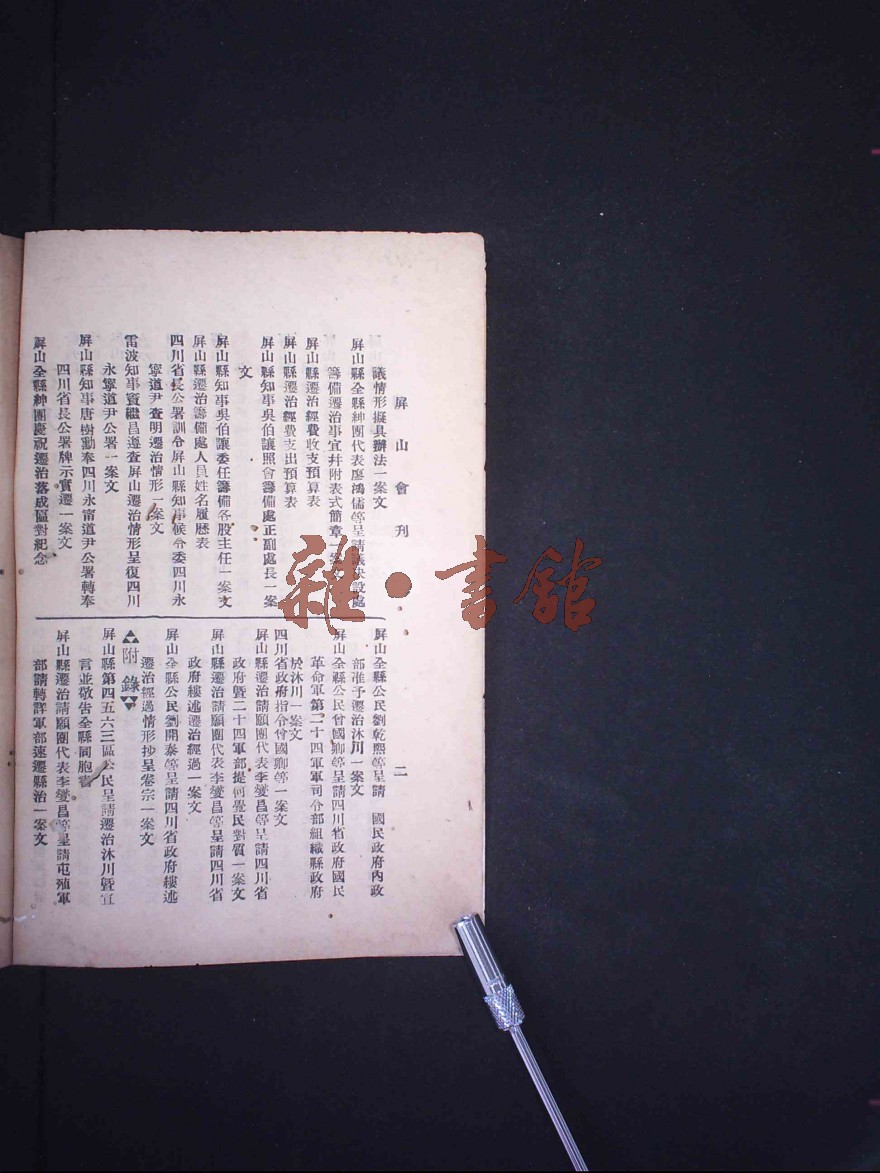 屏山會刊
二
議情形擬具辦法一案文
屏山縣全縣紳團代表廖鴻儒等呈請議決設處
籌備遷治事宜幷附表式簡章一案文
屏山縣遷治經費收支預算表
屏山縣遷治經費支出預算表
屏山縣知事吳伯讓照會籌備處正副處長一案
文
屏山縣知事吳伯讓委任籌備各股主任一案文
屏山縣遷治籌備處人員姓名履歷表
四川省長公署訓令屏山縣知事候令委四川永
寧道尹查明遷治情形一案文
雷波知事竇繼昌遵查屏山遷治情形呈復四川
永寧道尹公署一案文
屏山縣知事唐樹勳奉四川永甯道尹公署轉奉
四川省長公署牌示實遷一案文
屏山全縣紳團慶祝遷治落成區對紀念
屏山全縣公民劉乾熙等呈請 國民政府內政
部准予遷治沐川一案文
屏山全縣公民曾國卿等呈請四川省政府國民
革命軍第二十四軍軍司令部組織縣政府
於沐川一案文
四川省政府指令曾國卿等一案文
屏山縣遷治請願團代表李夑昌等呈請四川省
政府暨二十四軍部提何覺民對質一案文
屏山縣遷治請願團代表李夑昌等呈請四川省
政府縷述遷治經過一案文
屏山全縣公民劉開泰等呈請四川省政府縷述
遷治經過情形抄呈卷宗一案文
附錄
屏山縣第四五六三區公民呈請遷治沐川暨宣
言並敬告全縣同胞書
屏山縣遷治請願團代表李夑昌等呈請屯殖軍
部請轉詳軍部速遷縣治一案文
雜·書館